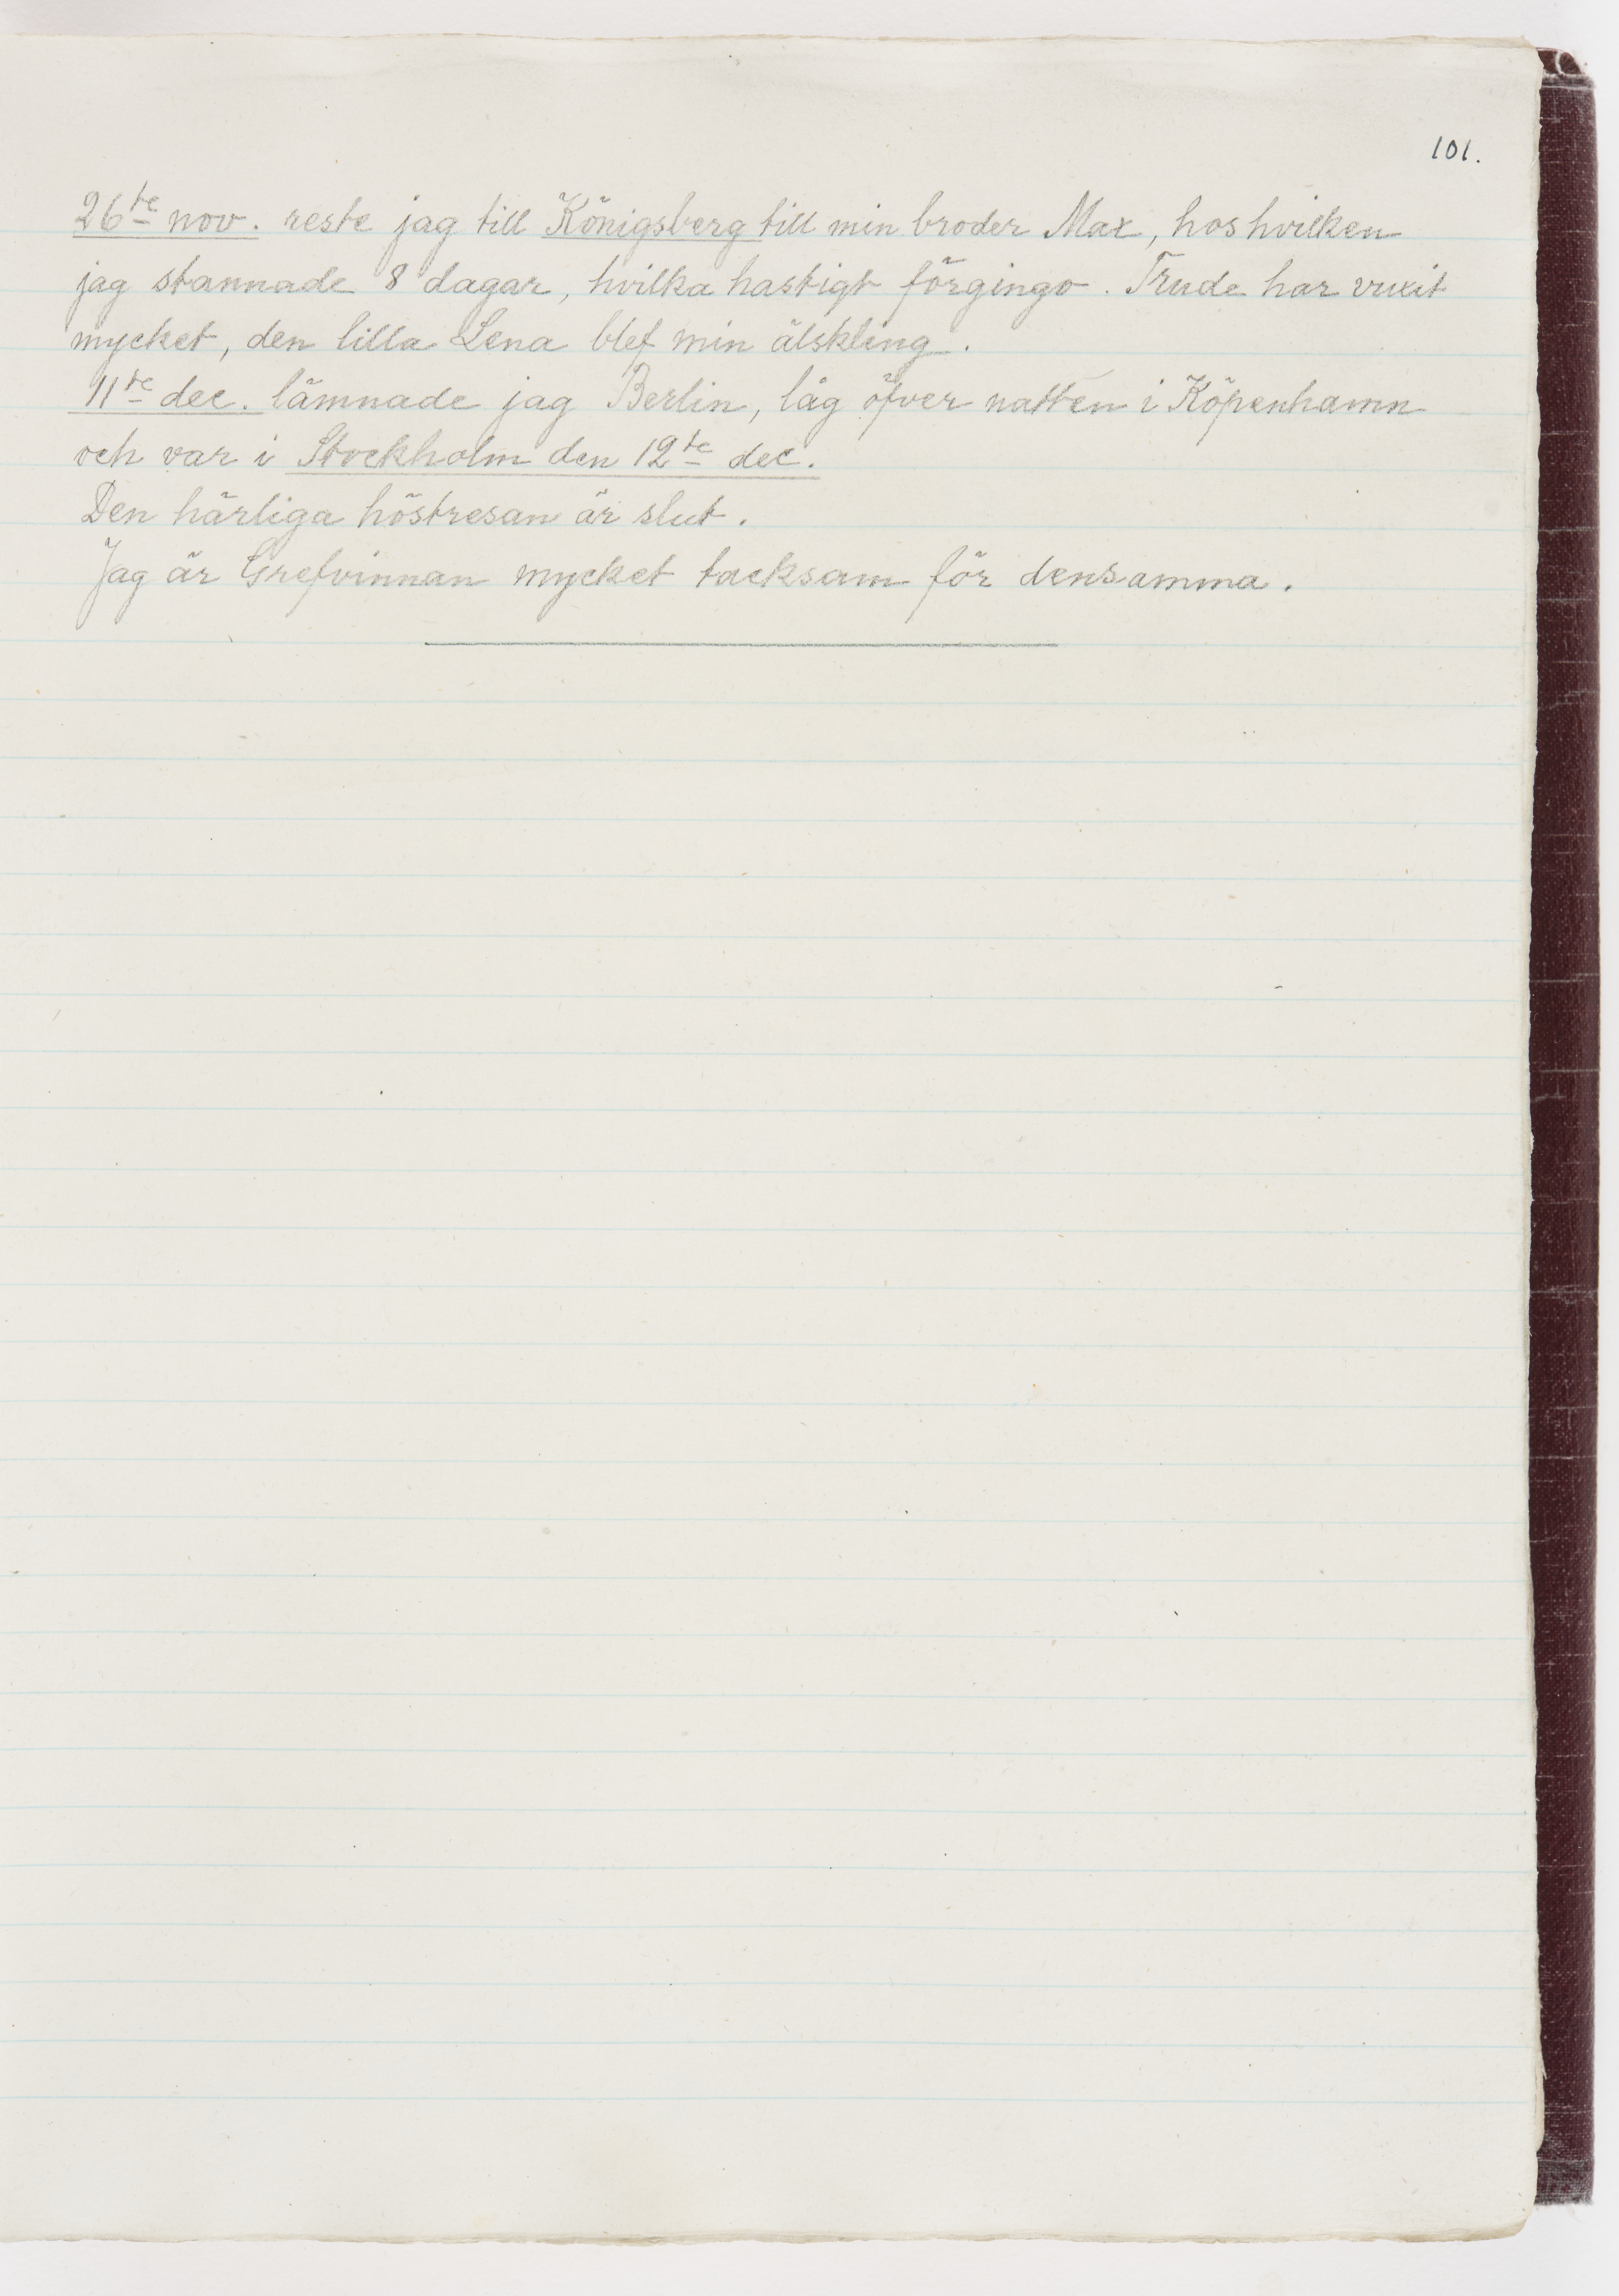 101.
26te nov. reste jag till Königsberg till min broder Max, hos hvilken
jag stannade 8 dagar, hvilka hastigt förgingo. Trude har vuxit
mycket, den lilla Lena blef min älskling.
11te dec. lämnade jag Berlin, låg öfver natten i Köpenhamn
och var i Stockholm den 12te dec.
Den härliga höstresan är slut.
Jag är Grefvinnan mycket tacksam för densamma.